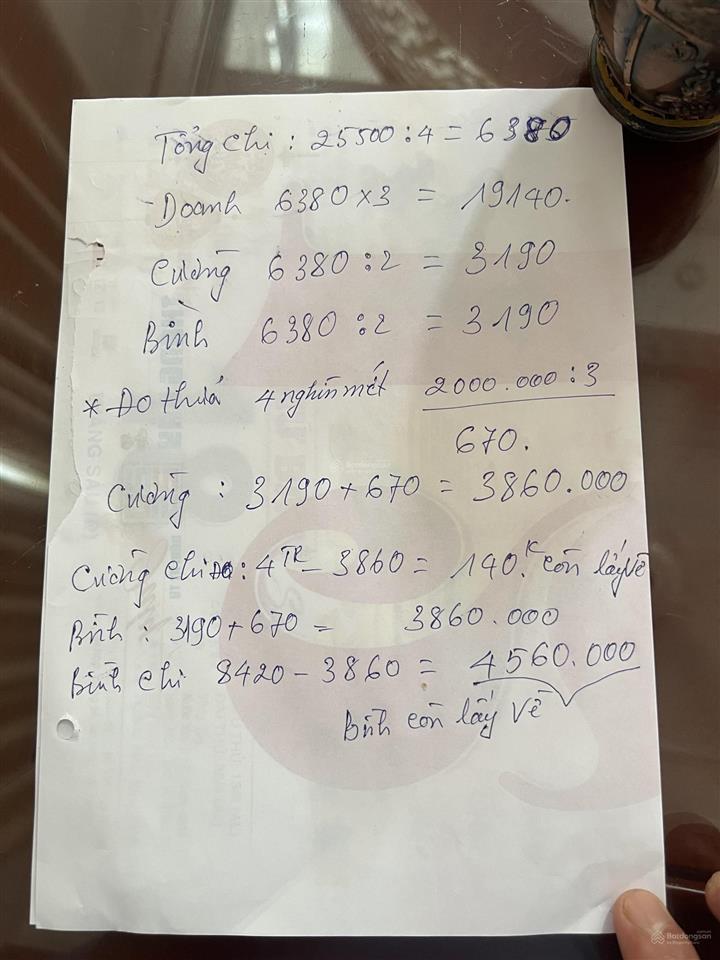 Tổng chi : 25500 : 4 = 6380
- Doanh 6380 x 3 = 19140.
Cường 6380 : 2 = 3190
Bình 6380 : 2 = 3190
* Do thửa 4 nghìn mét 2000.000 : 3
670.
Cường : 3190 + 670 = 3860.000
Cường chi : 4TR - 3860 = 140.K còn lấy về
Bình : 3190 + 670 = 3860.000
Bình chi 8420 - 3860 = 4560.000
Bình còn lấy về
Batdongsan